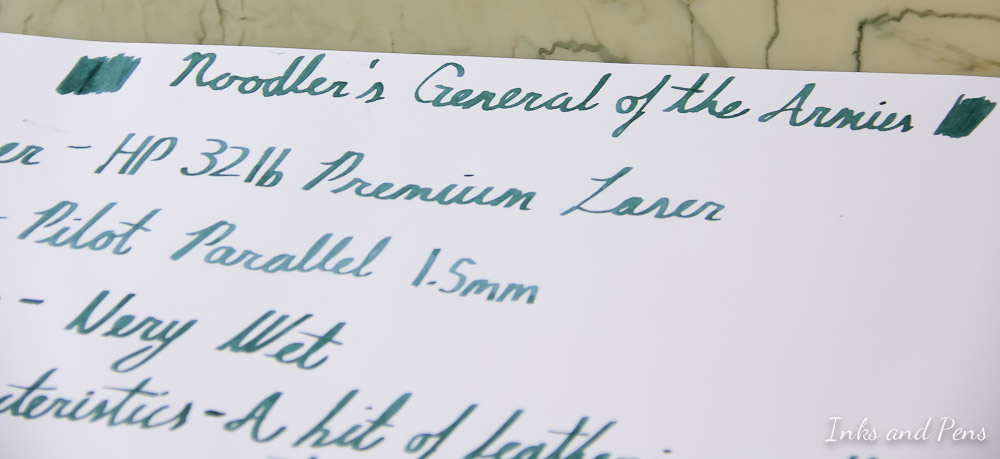 Noodler's General of the Armies
er - HP 32lb Premium Laser
- Pilot Parallel 1.5mm
- Very Wet
cteristics - A bit of feather
Inks and Pens